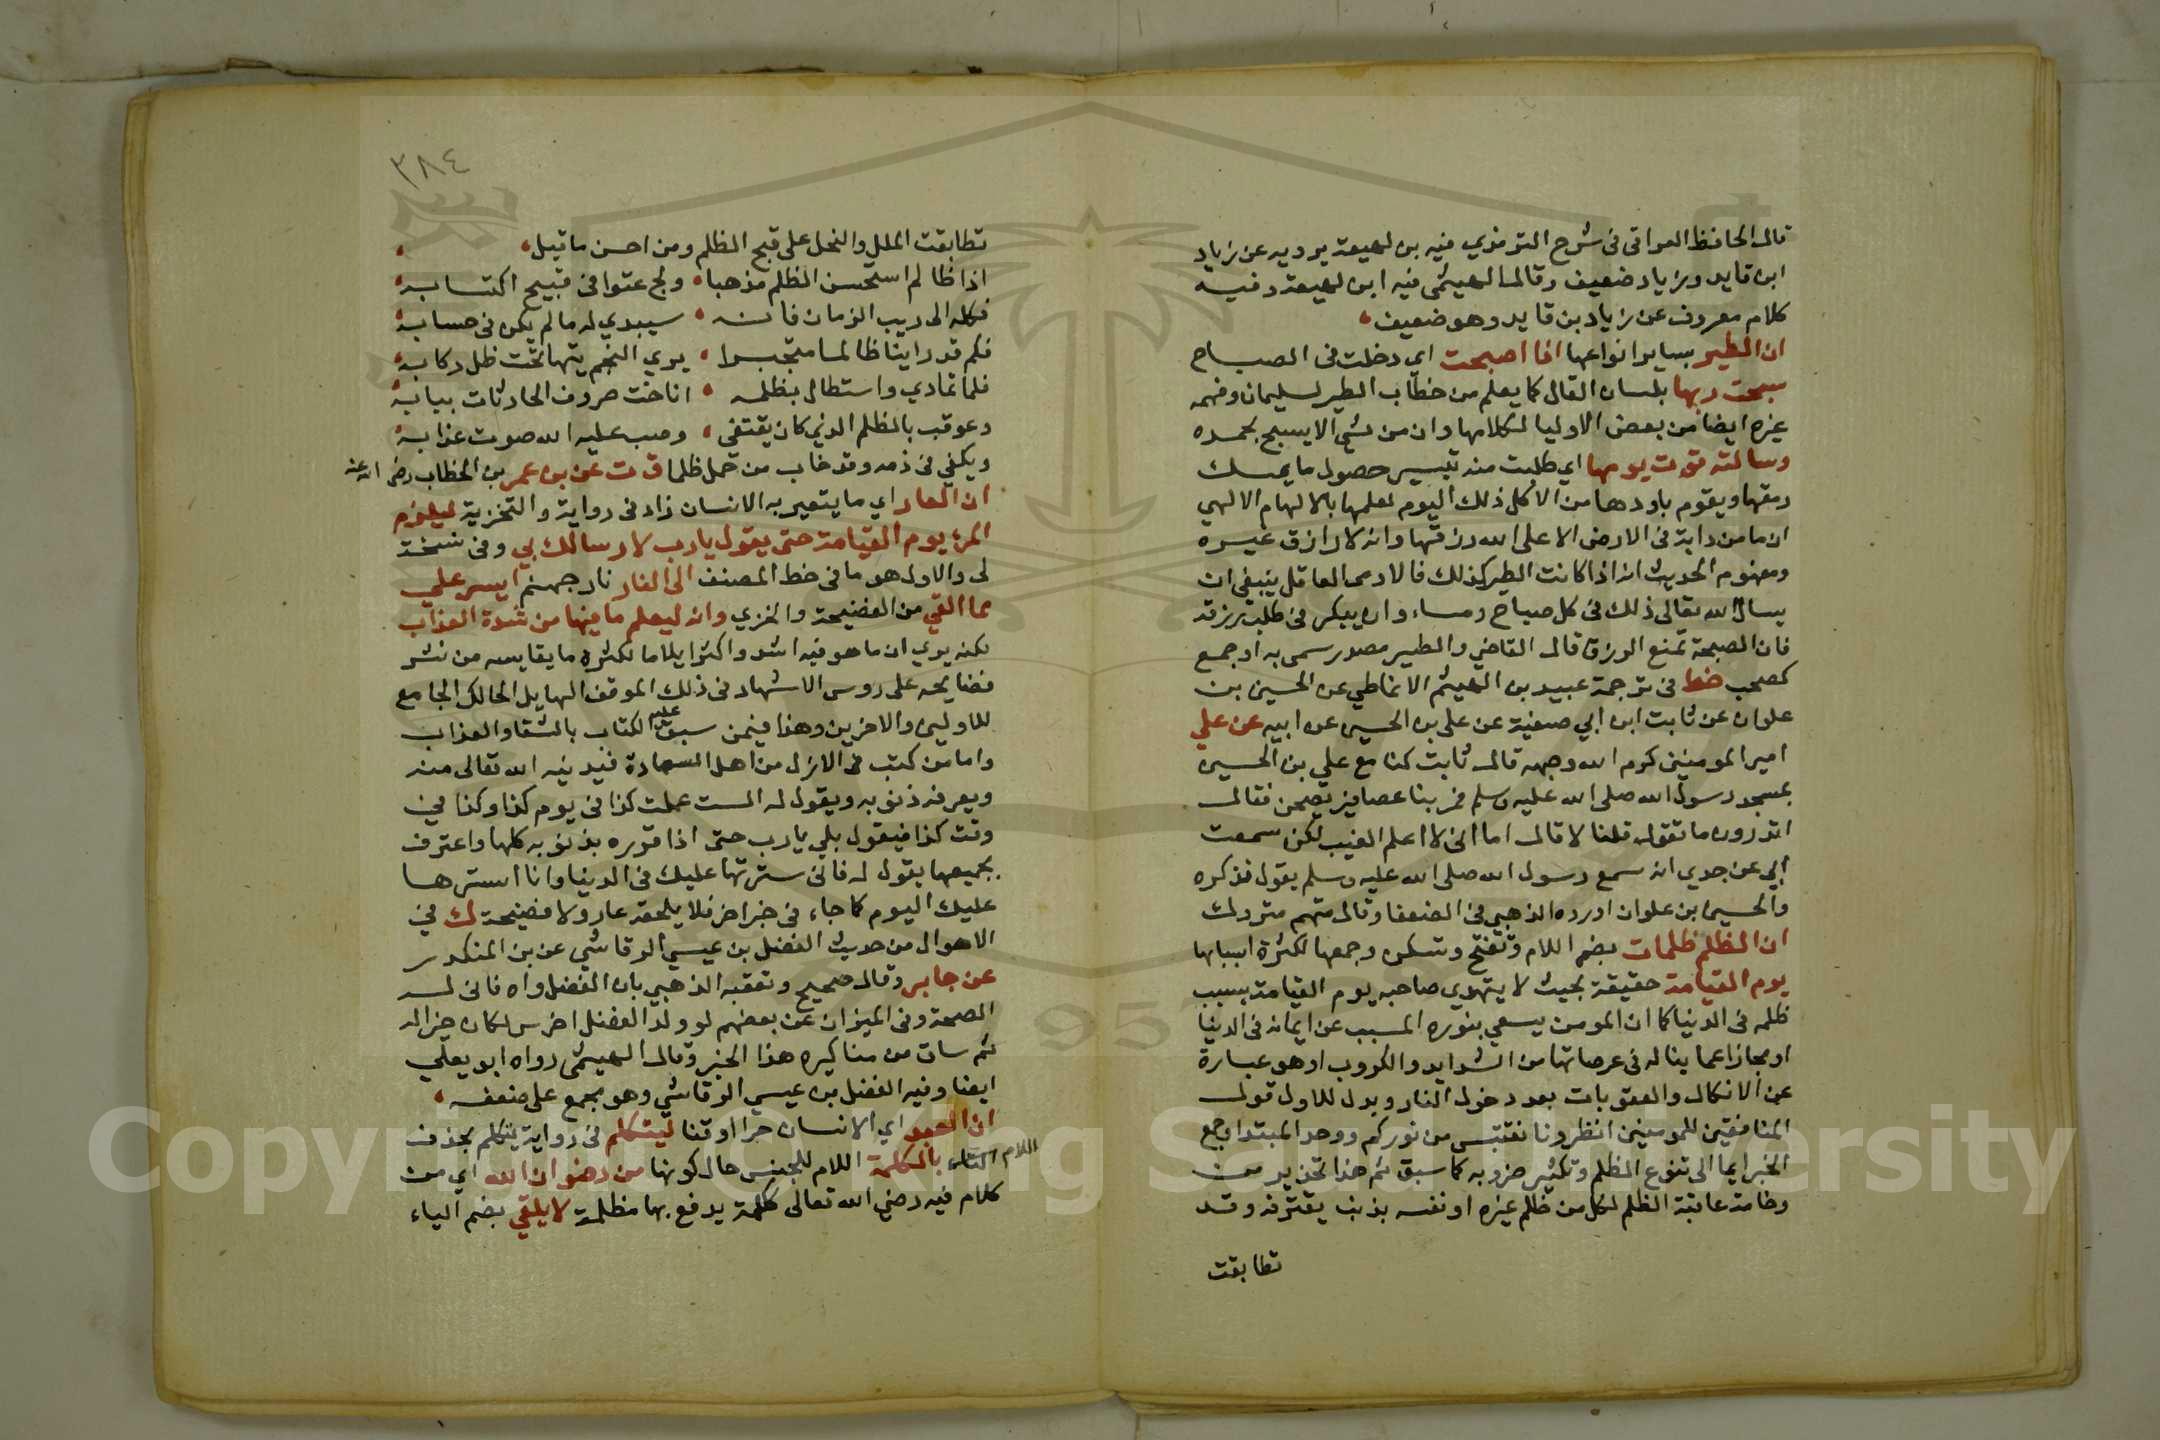 قال الحافظ العراقي في شرح الترمذي فيه بن لهيعة يرويه عن زياد
ابن فايد وزياد ضعيف وقال الهيثمي فيه ابن لهيعة وفيه
كلام معروف عن زياد بن فايد وهو ضعيف
ان الطير بساير انواعها اذا اصبحت اي دخلت في الصباح
سبحت ربها بلسان القال كما يعلم من خطاب الطير لسليمان وفهمه
غيره ايضا من بعض الاوليا لكلامها وان من شي الا يسبح بحمده
وسالته قوت يومها اي طلبت منه تيسير حصول ما يمسك
رمقها ويقوم باودها من الاكل ذلك اليوم لعلمها بالالهام الالهي
ان ما من دابة في الارض الا على الله رزقها وانه لا رازق غيره
ومفهوم الحديث انه اذا كانت الطير كذلك فالادمي العاقل ينبغي ان
يسال الله تعالى ذلك في كل صباح ومساء وان يبكر في طلب رزقه
فان الصبحة تمنع الرزق قال القاضي والطير مصدر سمى به او جمع
كصحب خط في ترجمة عبيد بن الهيثم الانماطي عن الحسين بن
علوان عن ثابت ابن ابي صفية عن علي بن الحسين عن ابيه عن علي
امير المومنين كرم الله وجهه قال ثابت كنا مع علي بن الحسين
بمسجد رسول الله صلى الله عليه وسلم فمر بنا عصافير يصحن فقال
اتدرون ما تقول قلنا لا قال اما اني لا اعلم الغيب لكن سمعت
ابي عن جدي انه سمع رسول الله صلى الله عليه وسلم يقول فذكره
والحسين بن علوان اورده الذهبي في الضعفا وقال متهم متروك
ان الظلم ظلمات بضم اللام وتفتح وتسكن وجمعها لكثرة اسبابها
يوم القيامة حقيقة بحيث لا يهتدي صاحبه يوم القيامة بسبب
ظلمه في الدنيا كما ان المومن يسعي بنوره المسبب عن ايمانه في الدنيا
او مجازا عما يناله في عرصاتها من الشدايد والكروب او هو عبارة
عن الانكال والعقوبات بعد دخول النار ويدل للاول قول
المنافقين للمومنين انظرونا نقتبس من نوركم ووحد المبتدا وجمع
الخبر ايما الى تنوع الظلم وتكثير ضروبه كما سبق ثم هذا تحذير من
وخامة عاقبة الظلم لكل من ظلم غيره او نفسه بذنب يقترفه وقد
تطابقت
٣٨٤
تطابقت الملل والنحل على قبح الظلم ومن احسن ما قيل
اذا ظالم استحسن الظلم مذهبا ولج عتوا في قبيح اكتسابه
فكله الى ريب الزمان فانه سيبدي له ما لم يكن في حسابه
فكم قد راينا ظالما متجبرا يري النجم يتها تحت ظل ركابه
فلما تمادي واستطال بظلمه اناخت صروف الحادثات ببابه
وعوقب بالظلم الذي كان يقتفي وصب عليه الله صوت عذابه
ويكفي في ذمه وقد خاب من حمل ظلما ق ت عن بن عمر بن الخطاب رضي الله عنه
ان العار اي ما يتعير به الانسان زاد في رواية والتخزية ليلزم
المرء يوم القيامة حتى يقول يا رب لارسالك بي وفي نسخة
لى والاول هو ما في خط المصنف الى النار نار جهنم ايسر علي
مما القي من الفضيحة والخزي وانه ليعلم ما فيها من شدة العذاب
لكنه يري ان ما هو فيه اشد واكثر ايلاما لكثرة ما يقاسيه من نشر
فضايحه على روس الاشهاد في ذلك الموقف الهايل الحالك الجامع
للاولين والاخرين وهذا فيمن سبق عليه الكتاب بالشقا والعذاب
واما من كتب في الازل من اهل السعادة فيدنيه الله تعالى منه
ويعرفه ذنوبه ويقول له الست عملت كذا في يوم كذا وكذا في
وقت كذا فيقول بلي يا رب حتى اذا قرره بذنوبه كلها واعترف
بجميعها يقول له فاني سترتها عليك في الدنيا وانا استرها
عليك اليوم كما جاء في خبر اخر فلا يلحقه عار ولا فضيحة ك في
الاهوال من حديث الفضل بن عيسي الرقاشي عن بن المنكدر
عن جابر وقال صحيح وتعقبه الذهبي بان الفضل واه فاني له
الصحة وفي الميزان عن بعضهم لو ولد الفضل اخرس لكان خير اله
ثم ساق من مناكيره هذا الخبر وقال الهيثمي رواه ابو يعلي
ايضا وفيه الفضل بن عيسي الرقاشي وهو مجمع على ضعفه
ان العبد اي الانسان حرا او قنا ليتكلم في رواية يتكلم بحذف
اللام التاء بالكلمة اللام للجنس حال كونها من رضوان الله اي من
كلام فيه رضي الله تعالى ككلمة يدفع بها مظلمة لا يلقي بضم الياء
Copyright © King Saud University
1957